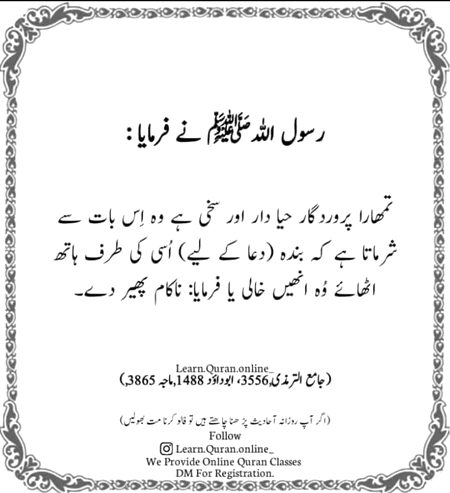 رسول اللہ ﷺ نے فرمایا:
تمھارا پروردگار حیا دار اور سخی ہے وہ اِس بات سے
شرماتا ہے کہ بندہ (دعا کے لیے) اُسی کی طرف ہاتھ
اٹھائے وُہ انھیں خالی یا فرمایا: ناکام پھیر دے۔
Learn.Quran.online_
(جامع الترمذی,3556، ابوداؤد 1488,ماجہ 3865,)
(اگر آپ روزانہ آحادیث پڑھنا چاھتے ہیں تو فالو کرنا مت بھولیں)
Follow
Learn.Quran.online_
We Provide Online Quran Classes
DM For Registration.